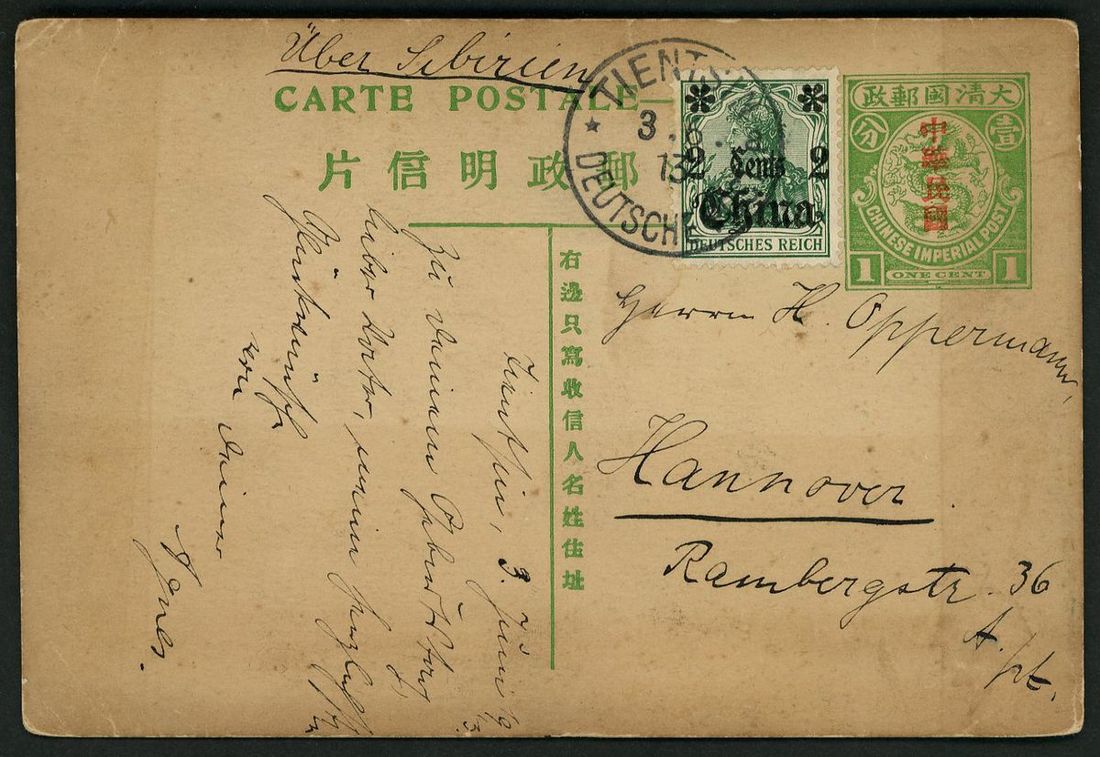 Über Sibirien
CARTE POSTALE
郵政明信片
TIENTSIN
3.6.
13
DEUTSCHE
2 Cents 2
China
DEUTSCHES REICH
大清國郵政
壹
分
中華民國
CHINESE IMPERIAL POST
1 ONE CENT 1
右邊只寫收信人名姓住址
Herrn H. Oppermann,
Hannover.
Rambergstr. 36
Tientsin, 3. Juni
Zu Deinem Geburtstag,
lieber Vater, meine
Glückwünsche
von Deiner
Agnes.